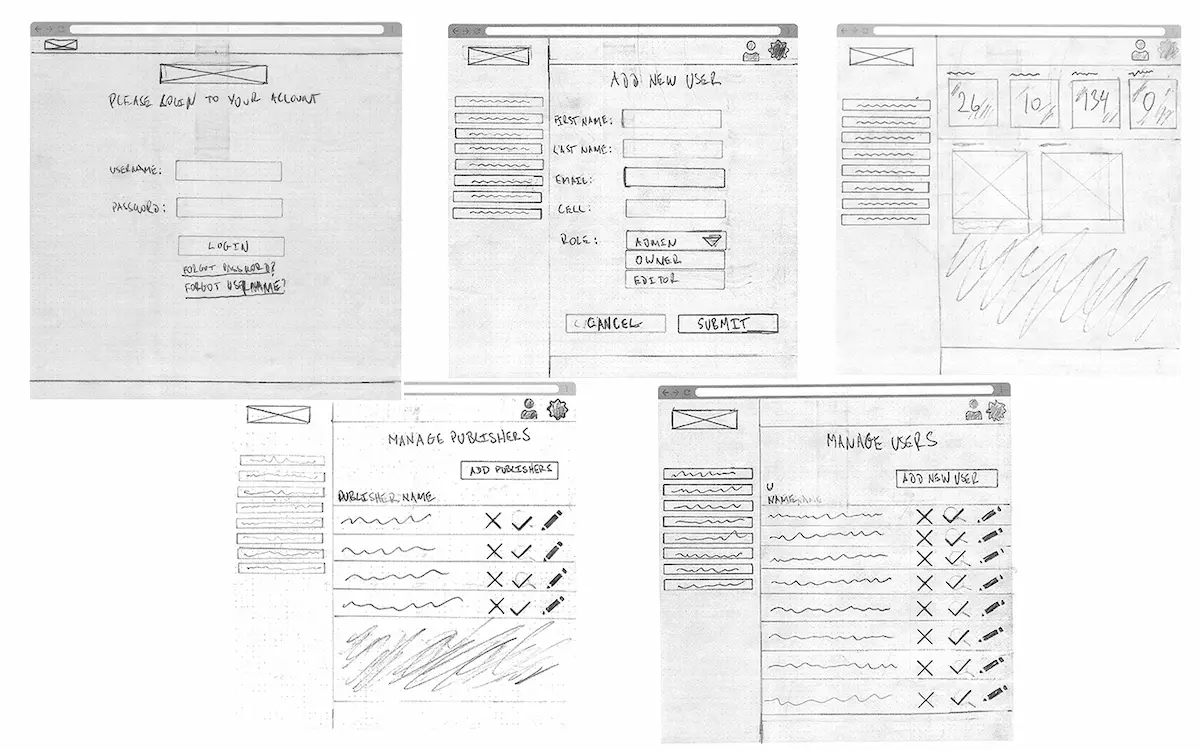 PLEASE LOGIN TO YOUR ACCOUNT
USERNAME:
PASSWORD:
LOGIN
FORGOT PASSWORD?
FORGOT USERNAME?
ADD NEW USER
FIRST NAME:
LAST NAME:
EMAIL:
CELL:
ROLE:
ADMIN
OWNER
EDITOR
CANCEL
SUBMIT
26 10 134 0
MANAGE PUBLISHERS
ADD PUBLISHERS
PUBLISHER NAME
MANAGE USERS
ADD NEW USER
U
NAME